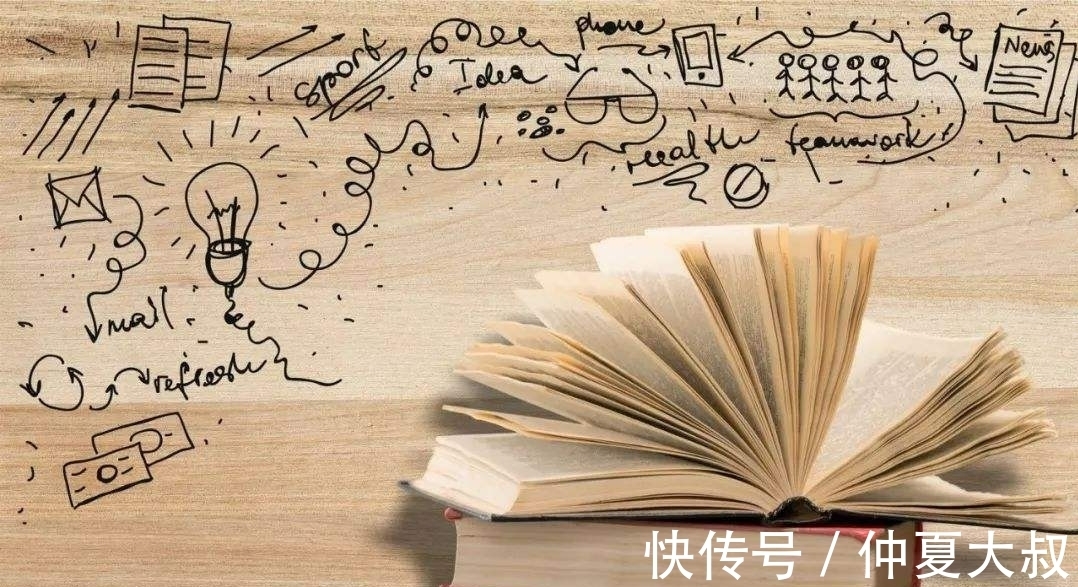 phone
Sport
Idea
News
health
teamwork
mail
refresh
快传号 / 仲夏大叔